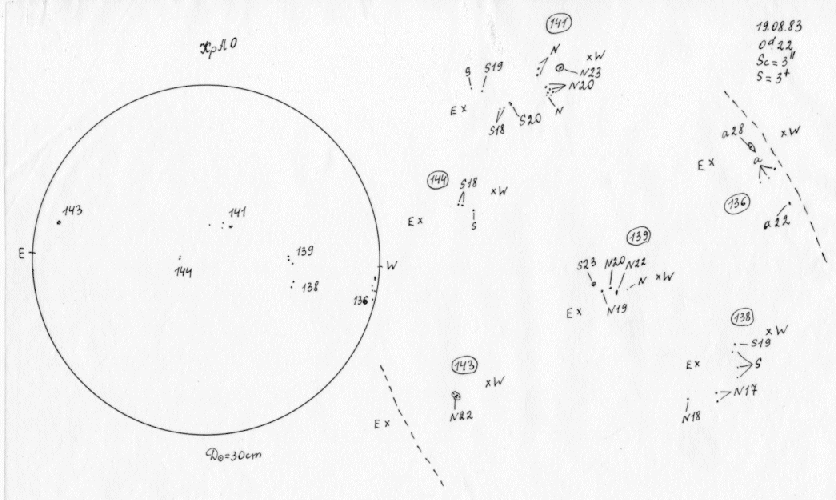 КрАО
19.08.83
0d22
Sc = 3"
S = 3+
141
N
W
N23
N20
N
S
S19
E
S18
S20
a28
W
E
a
136
a22
143
141
139
138
144
136
E
W
144
S18
W
E
S
139
S23
N20
N22
N
W
E
N19
138
W
S19
E
S
N17
N18
143
W
N22
E
D⊙=30cm